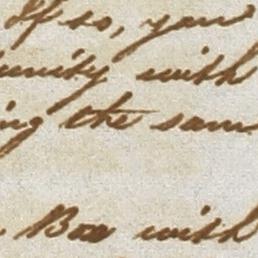 If so, your
unity with
ing the sam
Box with